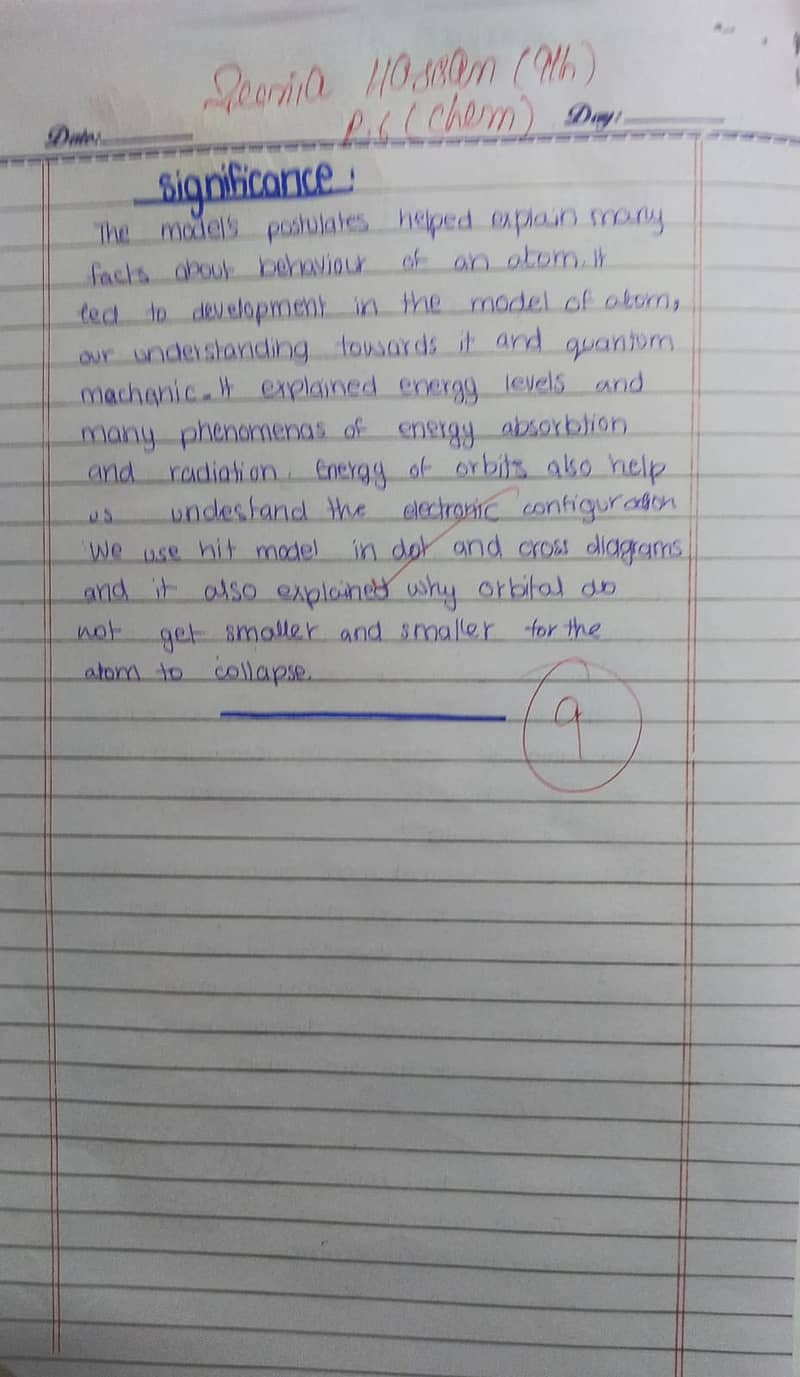 Hassan (9th)
P.6 (Chem)
Date:
Day:
significance:
The model's postulates helped explain many
facts about behaviour of an atom. It
led to development in the model of atom,
our understanding towards it and quantom
mechanic. It explained energy levels and
many phenomenas of energy absorbtion
and radiation. Energy of orbits also help
us undestand the electronic configuration
We use hit model in dot and cross diagrams
and it also explained why orbital do
not get smaller and smaller for the
atom to collapse.
9